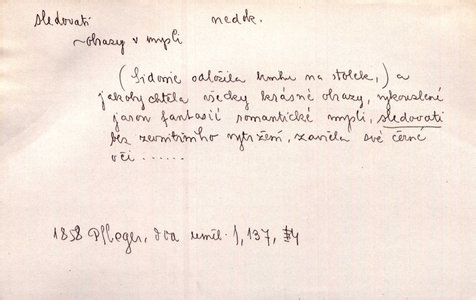 sledovati nedok.
~ obrazy v mysli
(Sidonie odložila knihu na stolek,) a
jakoby chtěla všecky krásné obrazy, vykouzlené
jarou fantasií romantické mysli, sledovati
bez zevnitřního vytržení, zavřela své černé
oči ......
1858 Pfleger, Dva uměl. I, 137,